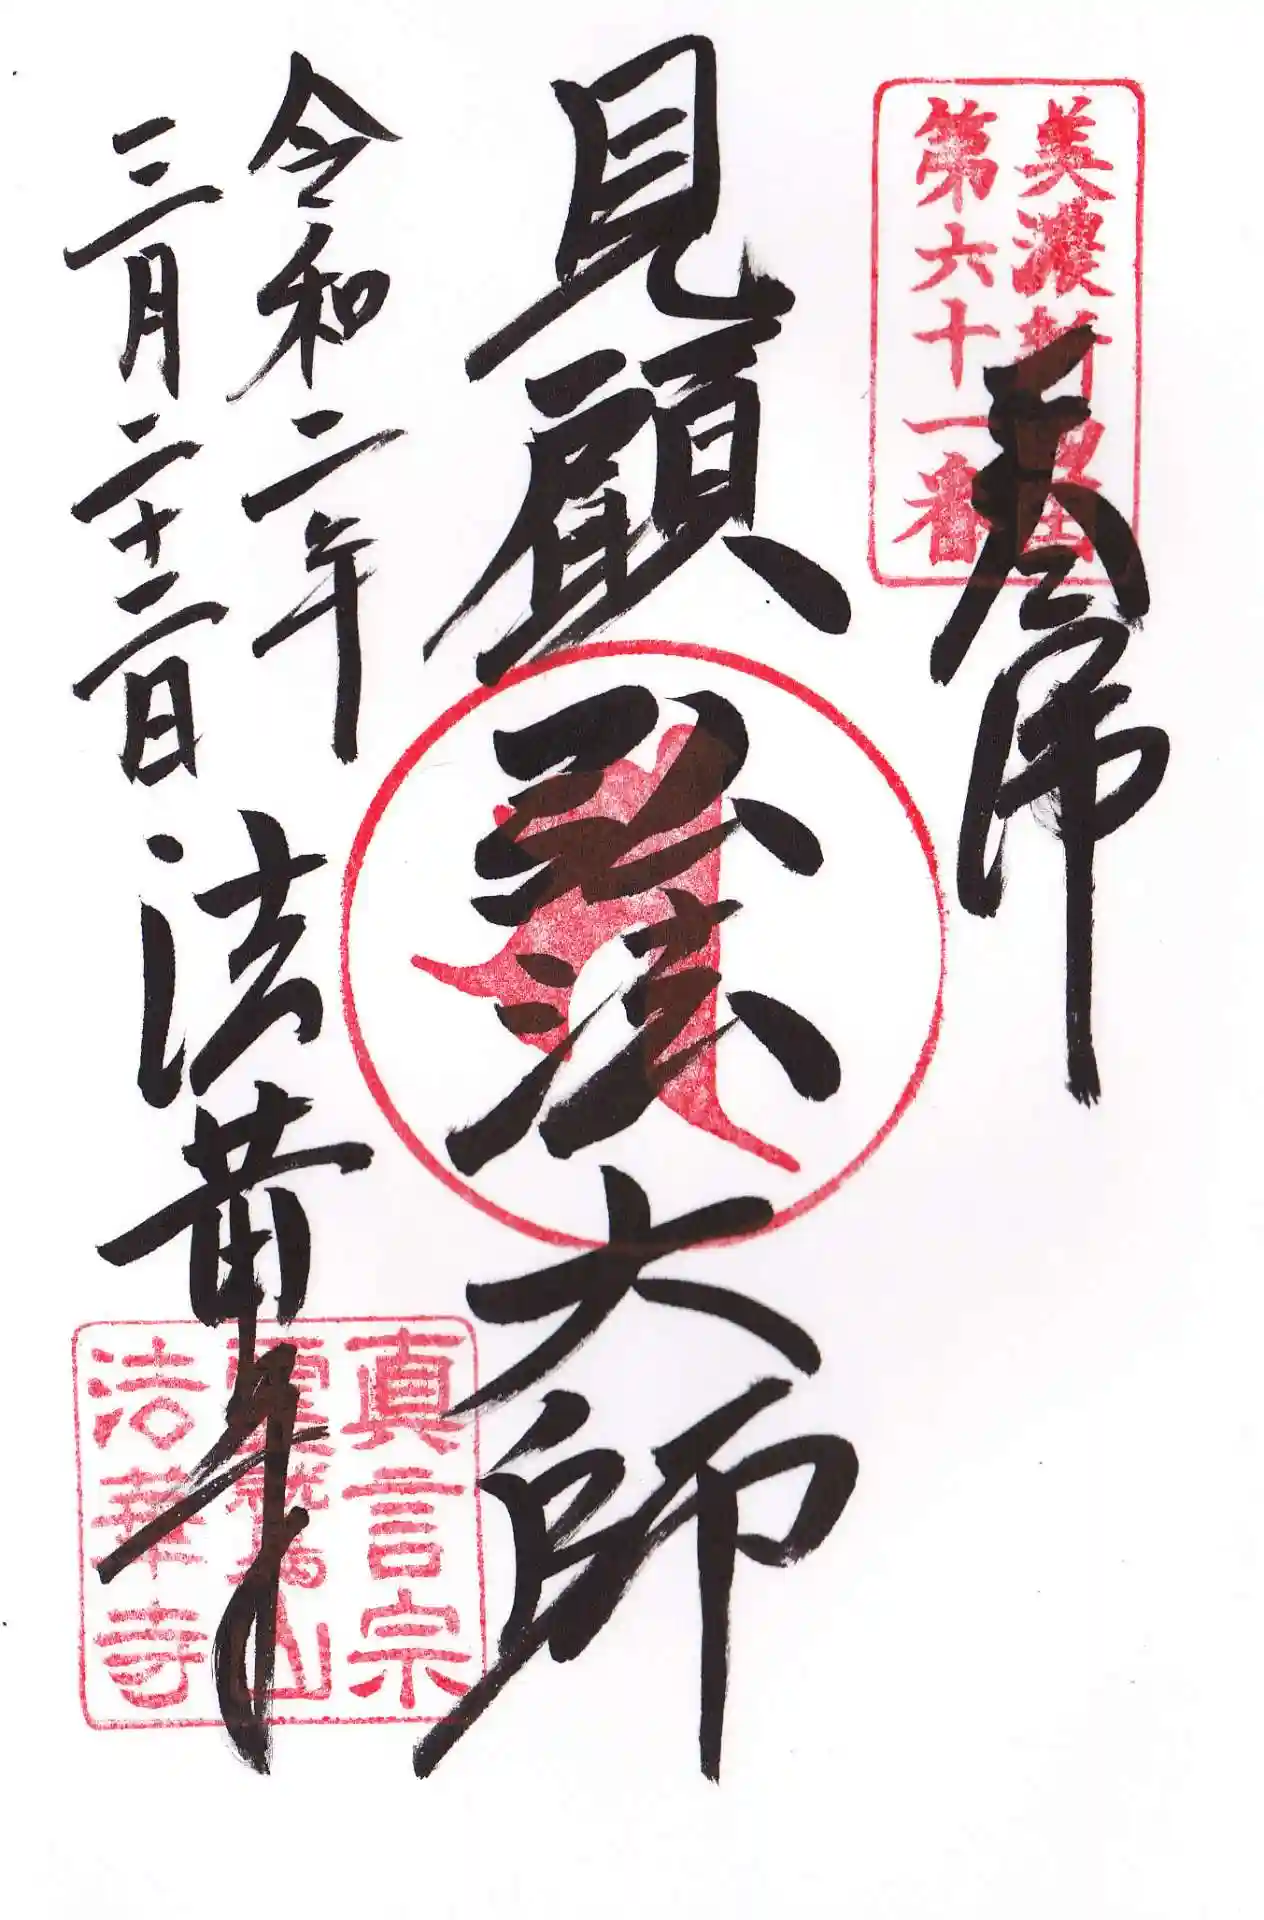 美濃新四国
第六十一番
奉拝
見顧弘法大師
令和二年
三月二十二日
法華寺
真言宗
霊鷲山
法華寺